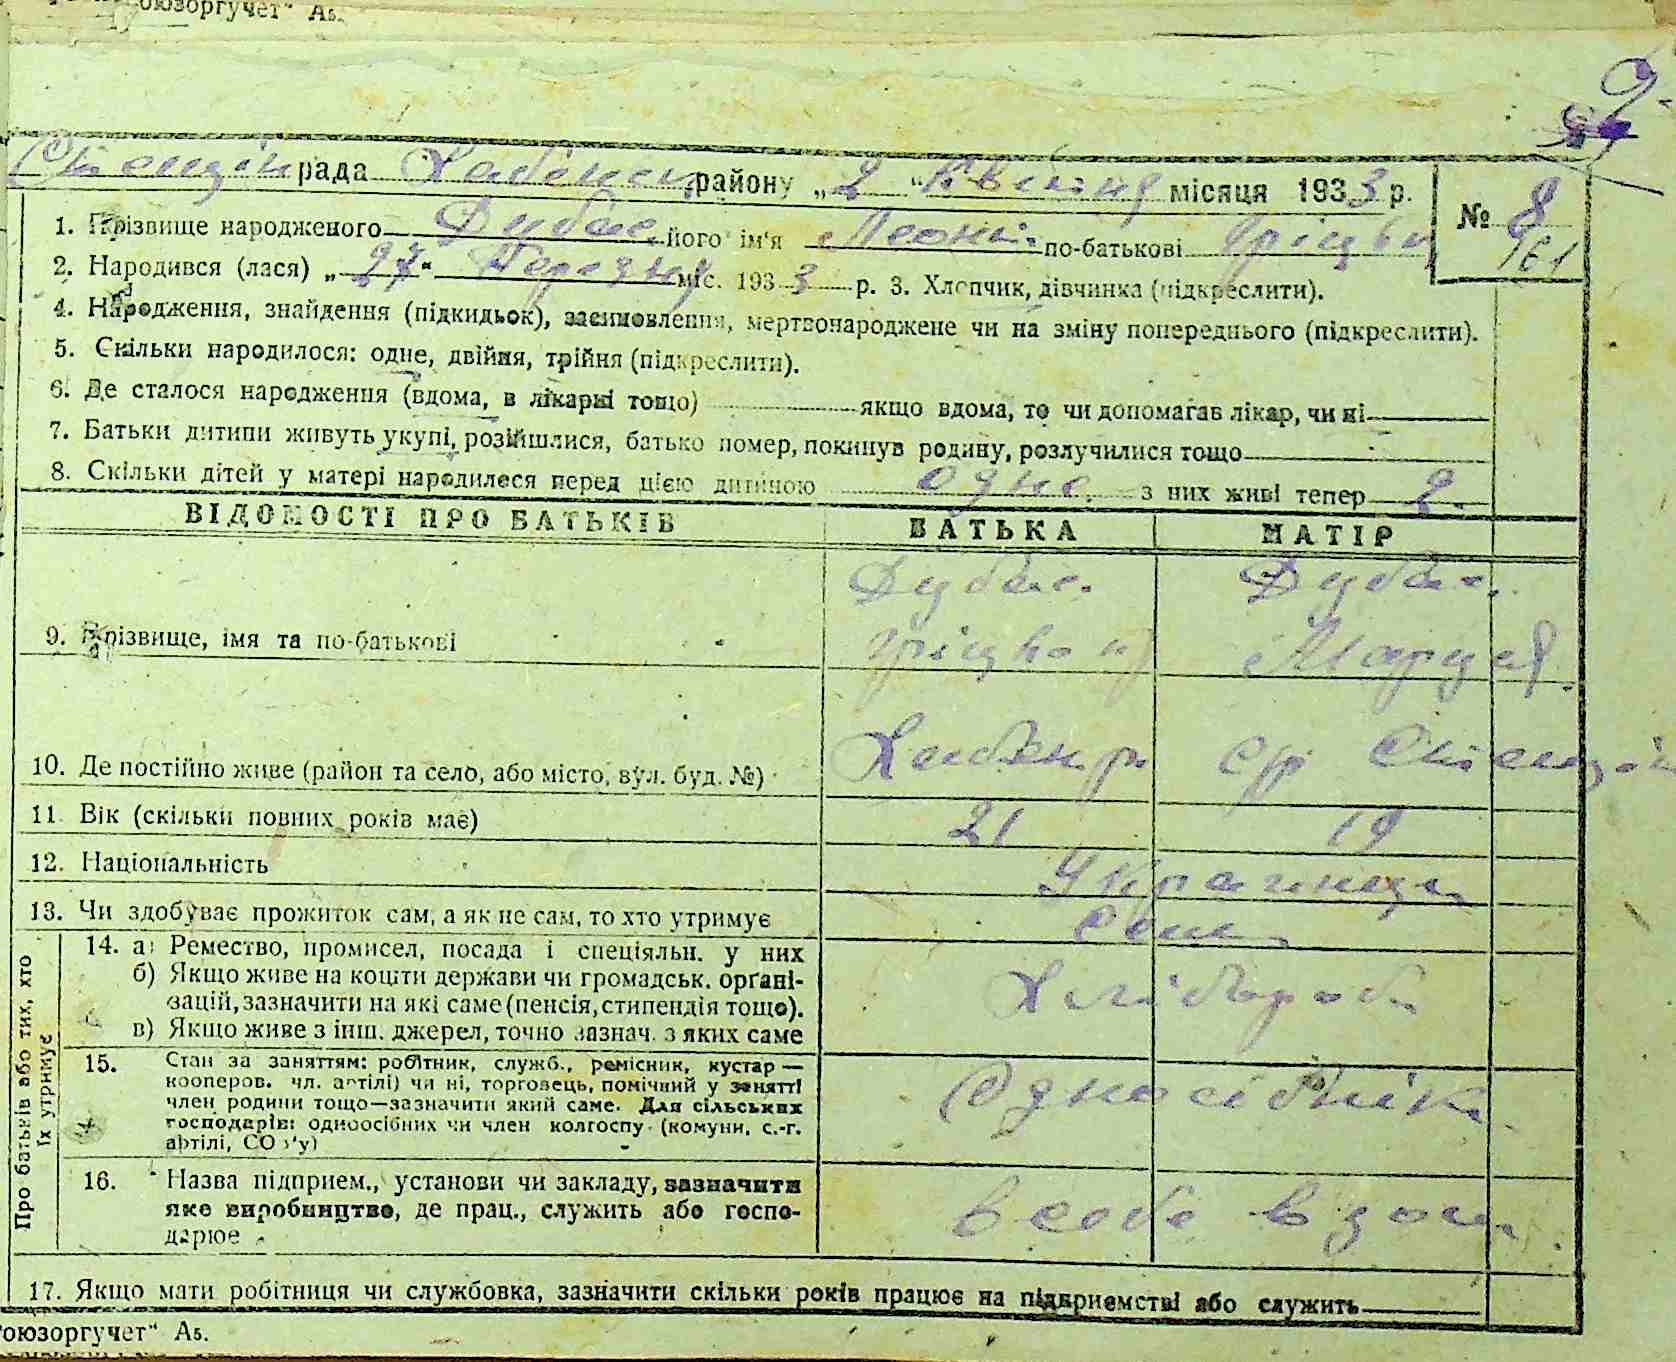 оюзоргучет" А5.
9
Стещін рада Хабенск. району „ 2 " Квітня місяця 1933 р.
№ 8
161
1. Прізвище народженого Дубас. його ім'я Леонті по-батькові Гріцьк
2. Народився (лася) „ 27 " Березня міс. 1933 р. 3. Хлопчик, дівчинка (підкреслити).
4. Народження, знайдення (підкидьок), засиновлення, мертвонароджене чи на зміну попереднього (підкреслити).
5. Скільки народилося: одне, двійня, трійня (підкреслити).
6. Де сталося народження (вдома, в лікарні тощо) якщо вдома, то чи допомагав лікар, чи ні
7. Батьки дитини живуть укупі, розійшлися, батько помер, покинув родину, розлучилися тощо
8. Скільки дітей у матері народилося перед цією дитиною одно. з них живі тепер 2.
ВІДОМОСТІ ПРО БАТЬКІВ БАТЬКА МАТІР
Дубас. Дубас.
9. Прізвище, імя та по-батькові Гріцько Марця
10. Де постійно живе (район та село, або місто, вул. буд. №) Хабен р с/р Стещін
11. Вік (скільки повних років має) 21 19
12. Національність Українци
13. Чи здобуває прожиток сам, а як не сам, то хто утримує Сам
Про батьків або тих, хто їх утримує
14. а) Ремество, промисел, посада і спеціяльн. у них
б) Якщо живе на кошти держави чи громадськ. орґані-
зацій, зазначити на які саме (пенсія, стипендія тощо). Хлібороб
в) Якщо живе з інш. джерел, точно зазнач. з яких саме
15. Стан за заняттям: робітник, служб., ремісник, кустар —
кооперов. чл. артілі) чи ні, торговець, помічний у занятті
член родини тощо—зазначити який саме. Для сільських Одноосібнік.
господарів: одноосібних чи член колгоспу (комуни, с.-г.
артілі, СОЗ'у)
16. Назва підприєм., установи чи закладу, зазначити
яке виробництво, де прац., служить або госпо- в себе вдом.
дарює
17. Якщо мати робітниця чи службовка, зазначити скільки років працює на підприємстві або служить
оюзоргучет" А5.